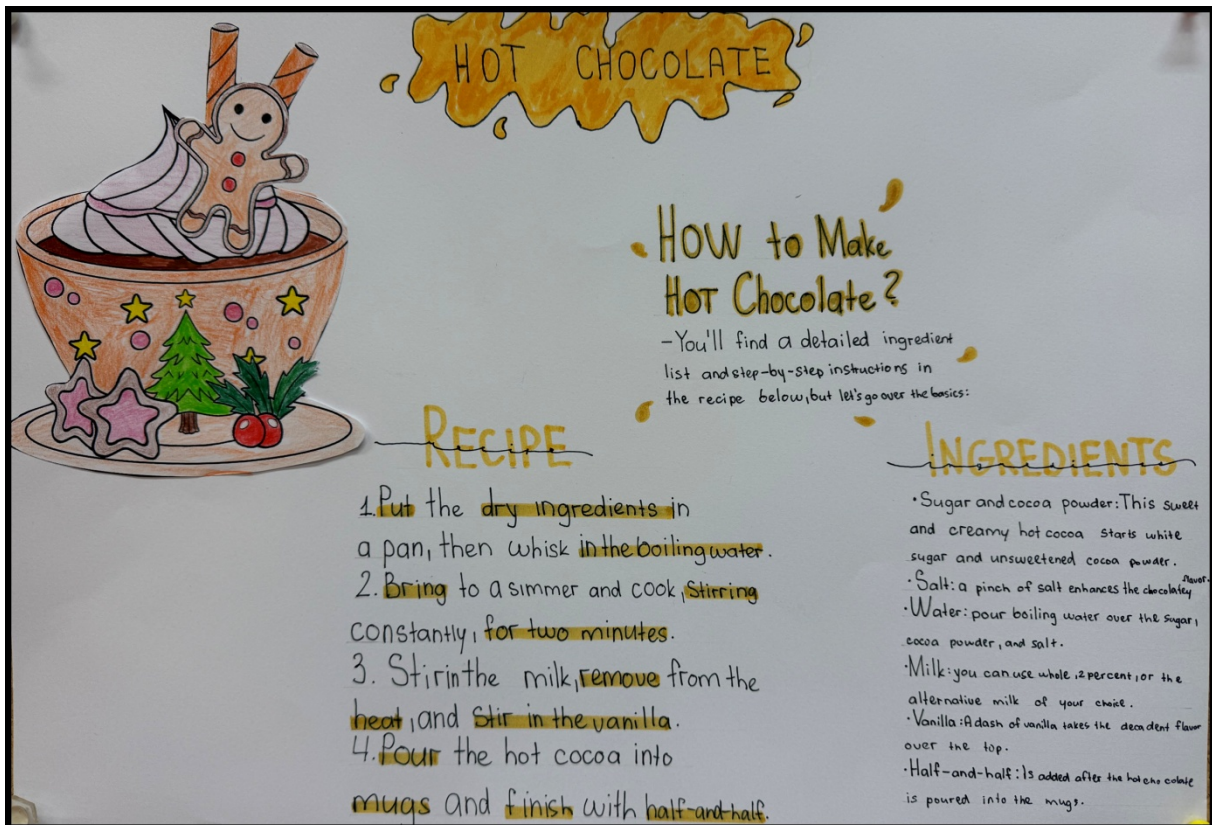 HOT CHOCOLATE
HOW to Make
HOT Chocolate?
-You'll find a detailed ingredient
list and step-by-step instructions in
the recipe below, but let's go over the basics:
RECIPE
1. Put the dry ingredients in
a pan, then whisk in the boiling water.
2. Bring to a simmer and cook, stirring
constantly, for two minutes.
3. Stir in the milk, remove from the
heat, and stir in the vanilla.
4. Pour the hot cocoa into
mugs and finish with half-and-half.
INGREDIENTS
·Sugar and cocoa powder: This sweet
and creamy hot cocoa starts white
sugar and unsweetened cocoa powder.
·Salt: a pinch of salt enhances the chocolatey flavor.
·Water: pour boiling water over the sugar,
cocoa powder, and salt.
·Milk: you can use whole, 2 percent, or the
alternative milk of your choice.
·Vanilla: A dash of vanilla takes the decadent flavor
over the top.
·Half-and-half: Is added after the hot chocolate
is poured into the mugs.